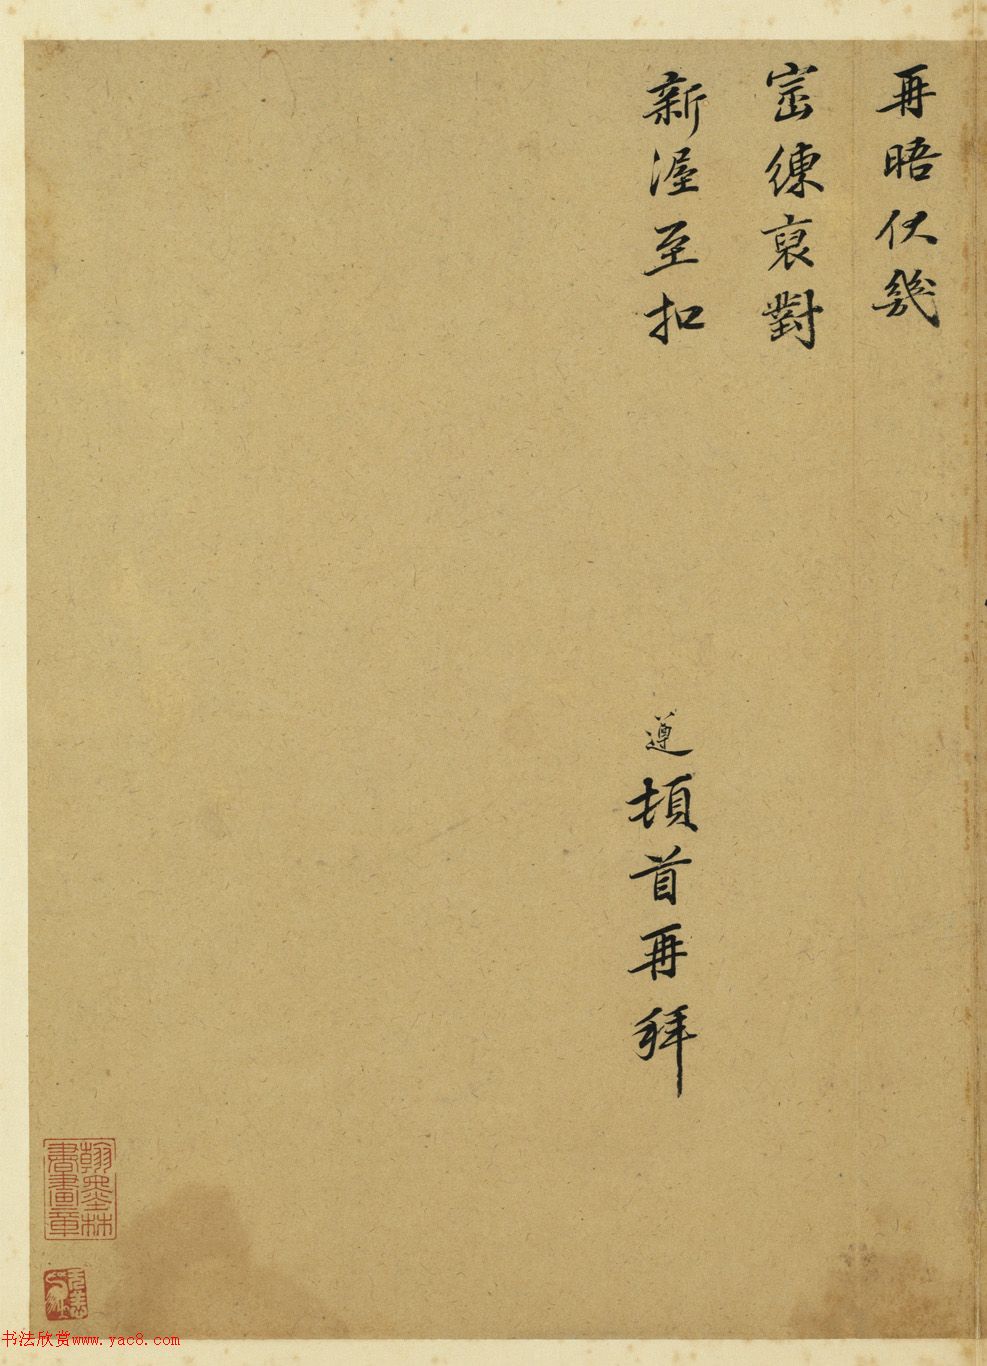 再晤伏幾
寶練裒對
新渥至扣
遵頓首再拜
翰墨林
書畫章
书法欣赏www.yac8.com